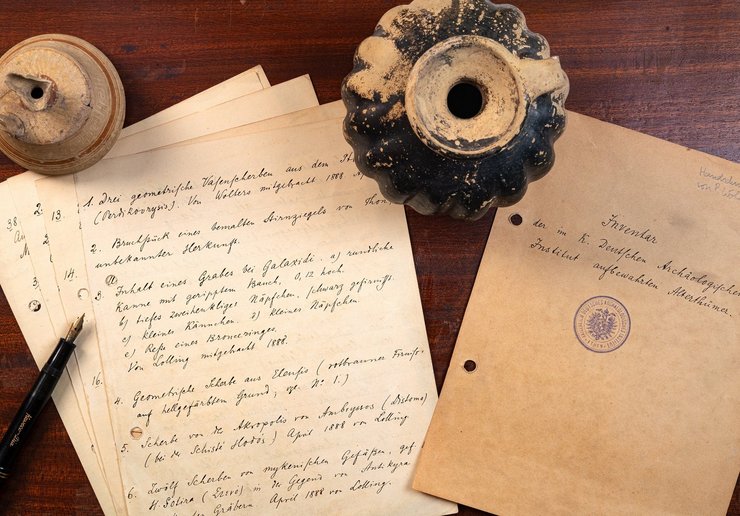 1. Drei geometrische Vasenscherben aus dem
(Perdikovrysis). Von Wolters mitgebracht. 1888.
2. Bruchstück eines bemalten Stirnziegels von Thon,
unbekannter Herkunft.
3. Inhalt eines Grabes bei Galaxidi. a) rundliche
Kanne mit geripptem Bauch, 0,12 hoch.
b) tiefes zweihenkliges Näpfchen, schwarz gefirnisst.
c) kleines Kännchen. d) kleines Näpfchen.
e) Rest eines Bronceringes.
Von Lolling mitgebracht 1888.
4. Geometrische Scherbe aus Eleusis (rotbrauner Firniss
auf hellgefärbtem Grund, vgl. No 1.)
5. Scherbe von der Akropolis von Ambryssos (Distomo)
(bei der Schiste Hodós) April 1888 von Lolling
6. Zwölf Scherben von mykenischen Gefäßen, gef.
H. Sotira in der Gegend von Antikyra
Gräbern. April 1888 von Lolling.
38.
2.
13.
14.
16.
Inventar
der im K. Deutschen Archäologischen
Institut aufbewahrten Alterthümer.